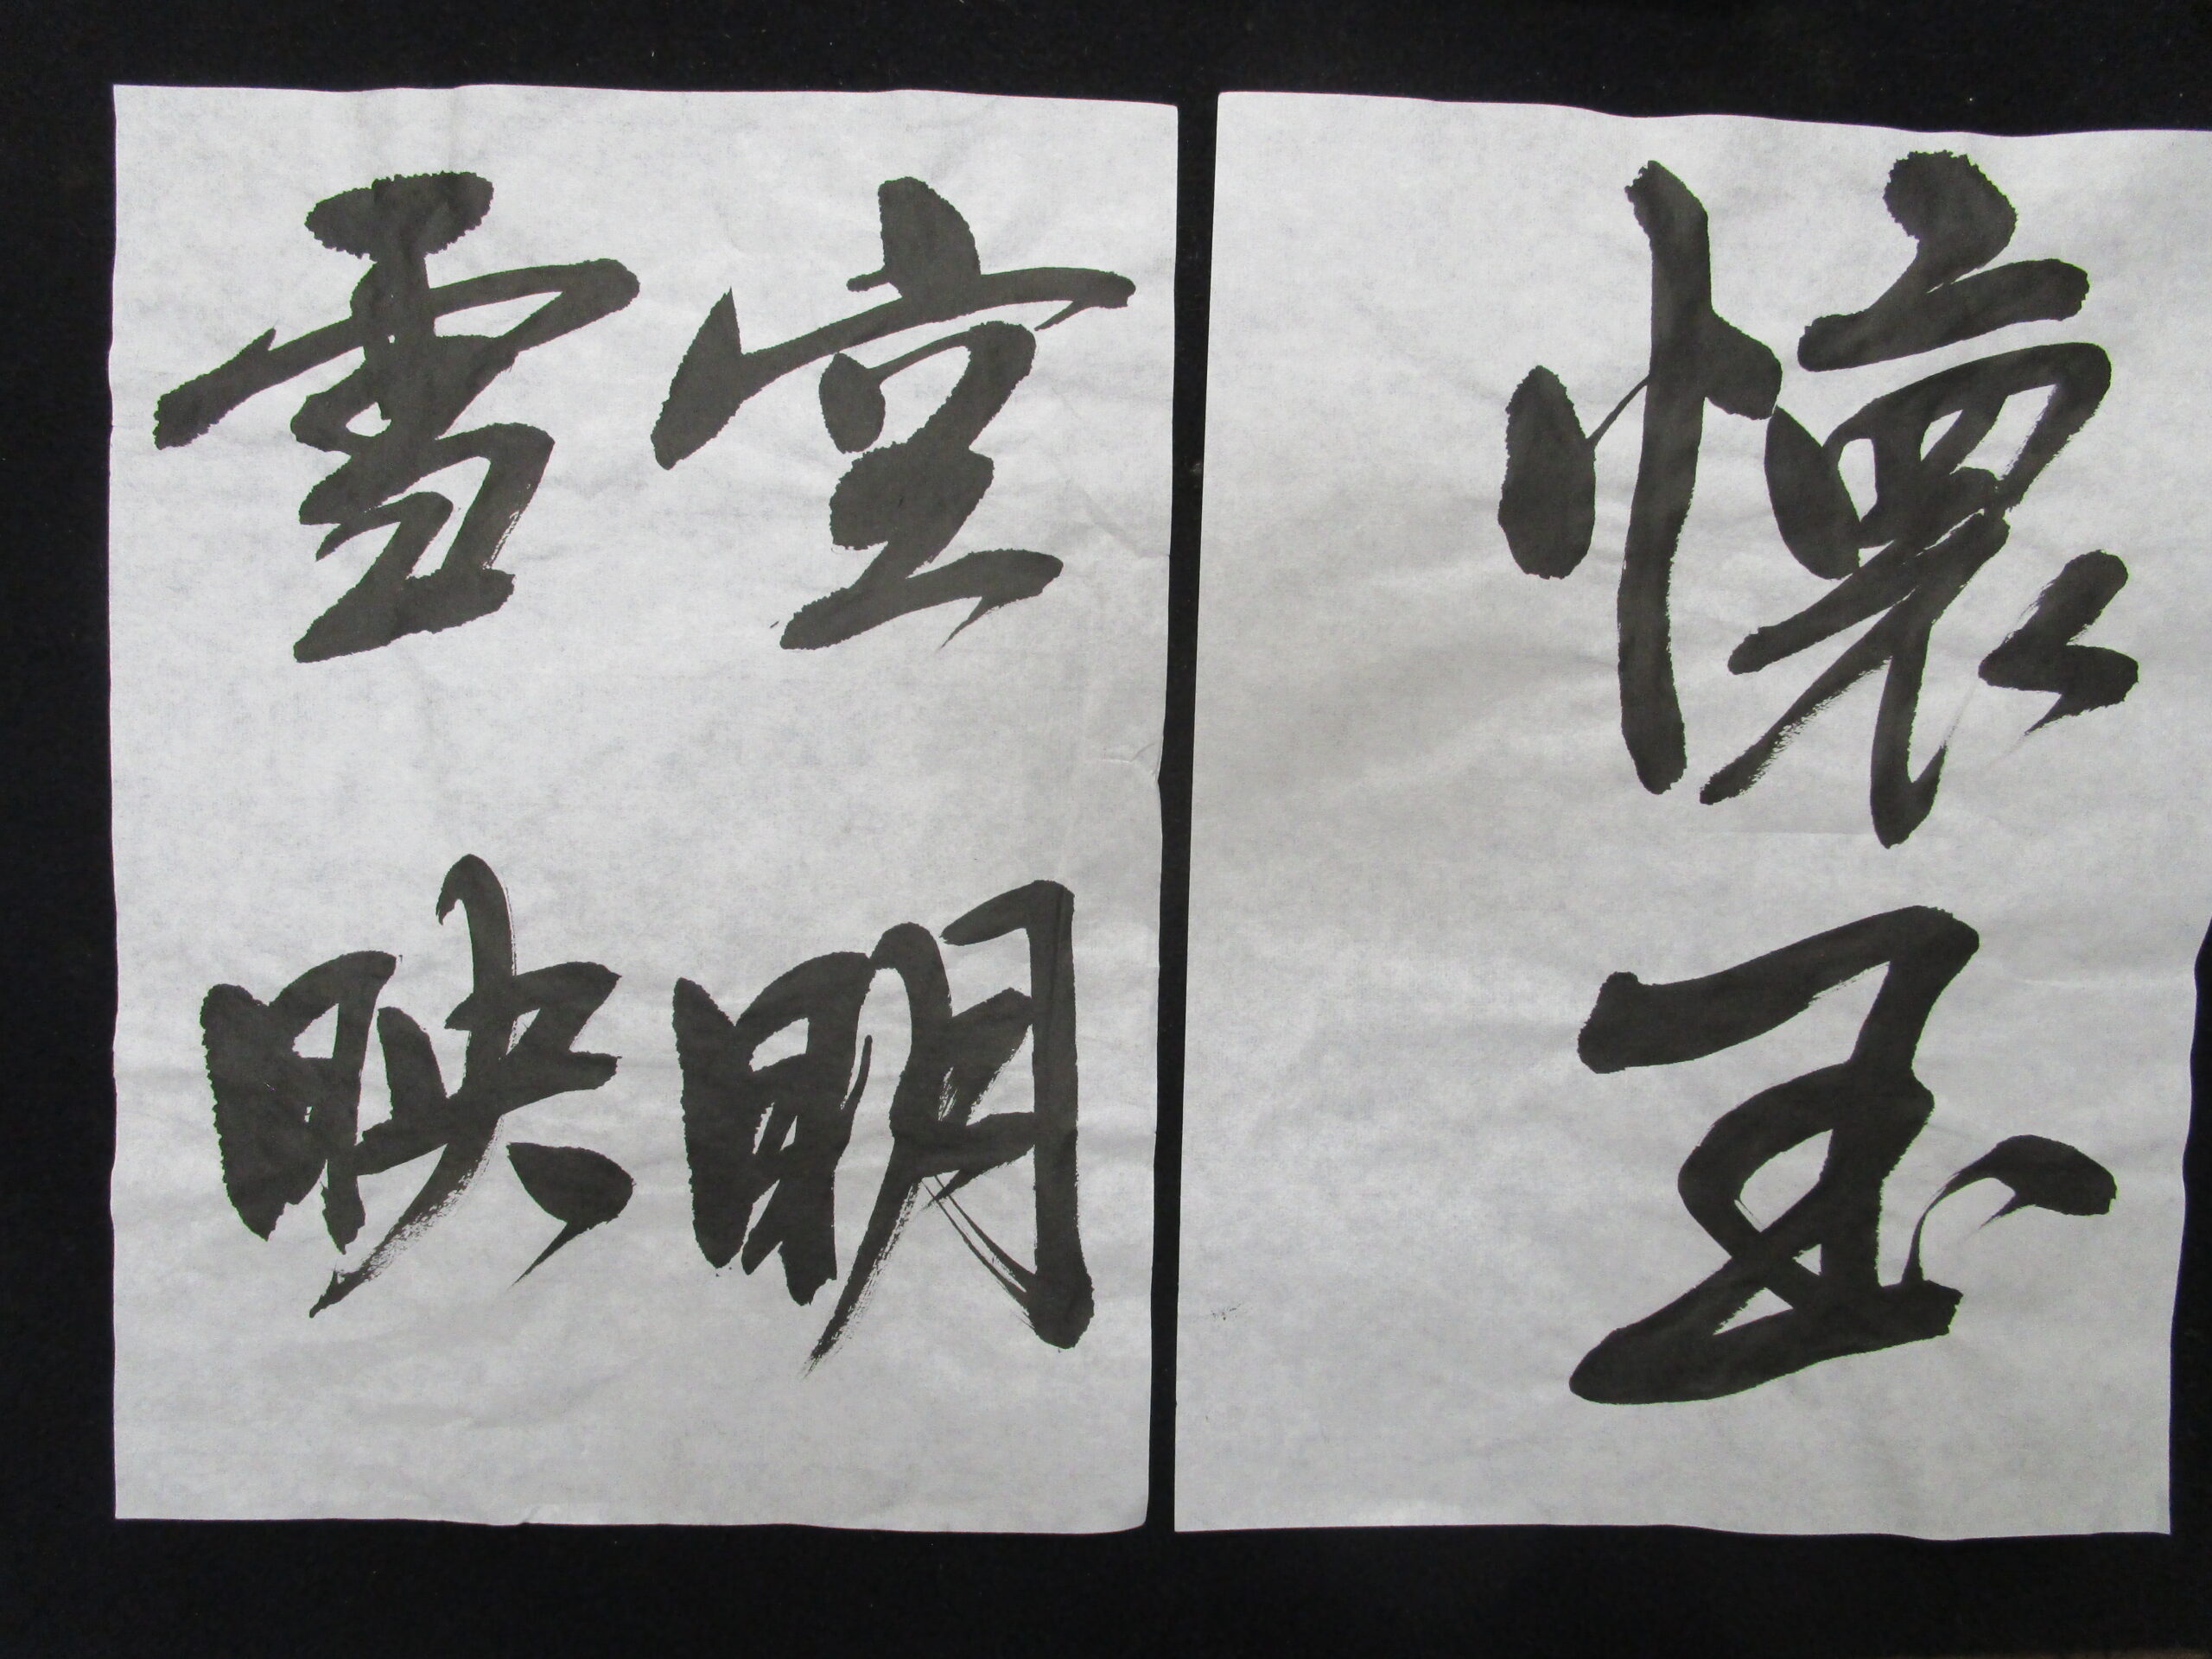 懐玉
空明
雪映